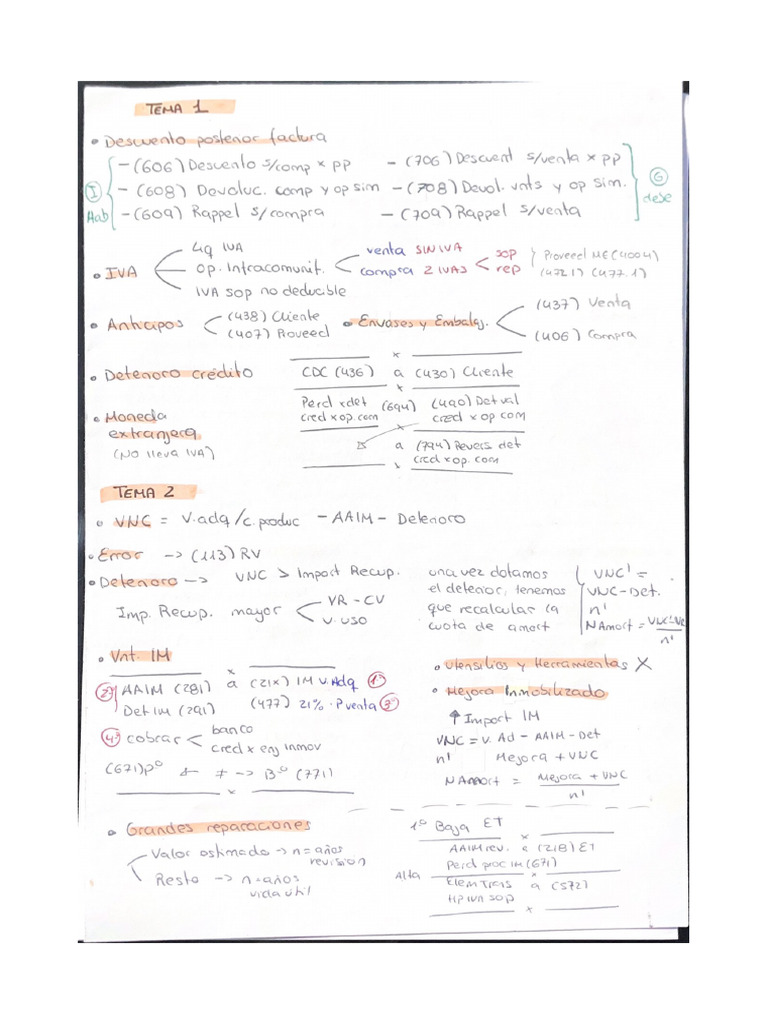 TEMA 1
• Descuento posterior factura
- (606) Descuento s/comp x pp - (706) Descuent s/venta x pp
I Hab - (608) Devoluc. comp y op sim - (708) Devol. vnts y op sim. G debe
- (609) Rappel s/compra - (709) Rappel s/venta
Liq IVA
• IVA op. Intracomunit. venta SIN IVA compra 2 IVAS sop rep Proveed ME (4004) (472.1) (477.1)
IVA sop no deducible
• Anticipos (438) Cliente (407) Proveed
• Envases y Embalaj. (437) Venta (406) Compra
• Deterioro crédito CDC (436) a (430) Cliente
Perd x det cred x op. com (694) (490) Det val cred x op com
a (794) Revers det cred x op. com
• Moneda
extranjera
(NO lleva IVA)
TEMA 2
• VNC = V.adq/c.produc - AAIM - Deterioro
• Error -> (113) RV
• Deterioro -> VNC > Import Recup.
Imp. Recup. mayor VR - CV
V. USO
una vez dotamos
el deterior, tenemos
que recalcular la
cuota de amort
VNC' =
VNC - Det.
n'
NAmort = VNC'-VR/n'
• Vnt. IM
2º AAIM (281) a (21x) IM V.Adq 1º
Det im (291) (477) 21% · P venta 3º
4º cobrar banco
cred x enj inmov
(671) Pº <- ≠ -> Bº (771)
• Utensilios y Herramientas X
• Mejora Inmobilizado
↑ Import IM
VNC = V. Ad - AAIM - Det
n' Mejora + VNC
NAmort = Mejora + VNC/n'
• Grandes reparaciones
Valor estimado -> n = años
revisión
Resto -> n = años
vida útil
1º Baja ET
AAIM rev. a (218) ET
Perd proc IM (671)
Alta Elem Tras a (572)
HP IVA SOP